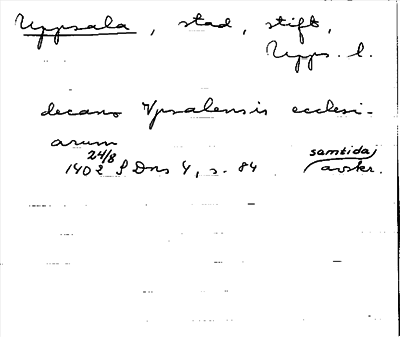 Uppsala, stad, stift,
Upps. l.
decano Vpsalensis ecclesi-
arum
24/8 samtida
1402 SDns 4, s. 84 avskr.